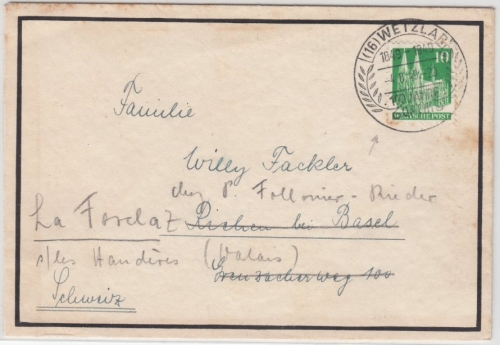 (16) WETZLAR
10
DEUTSCHE POST
Familie
Willy Fackler
chez P. Follonier-Rieder
La Forclaz Riehen bei Basel
s/les Haudères (Valais)
Grenzacherweg 100
Schweiz